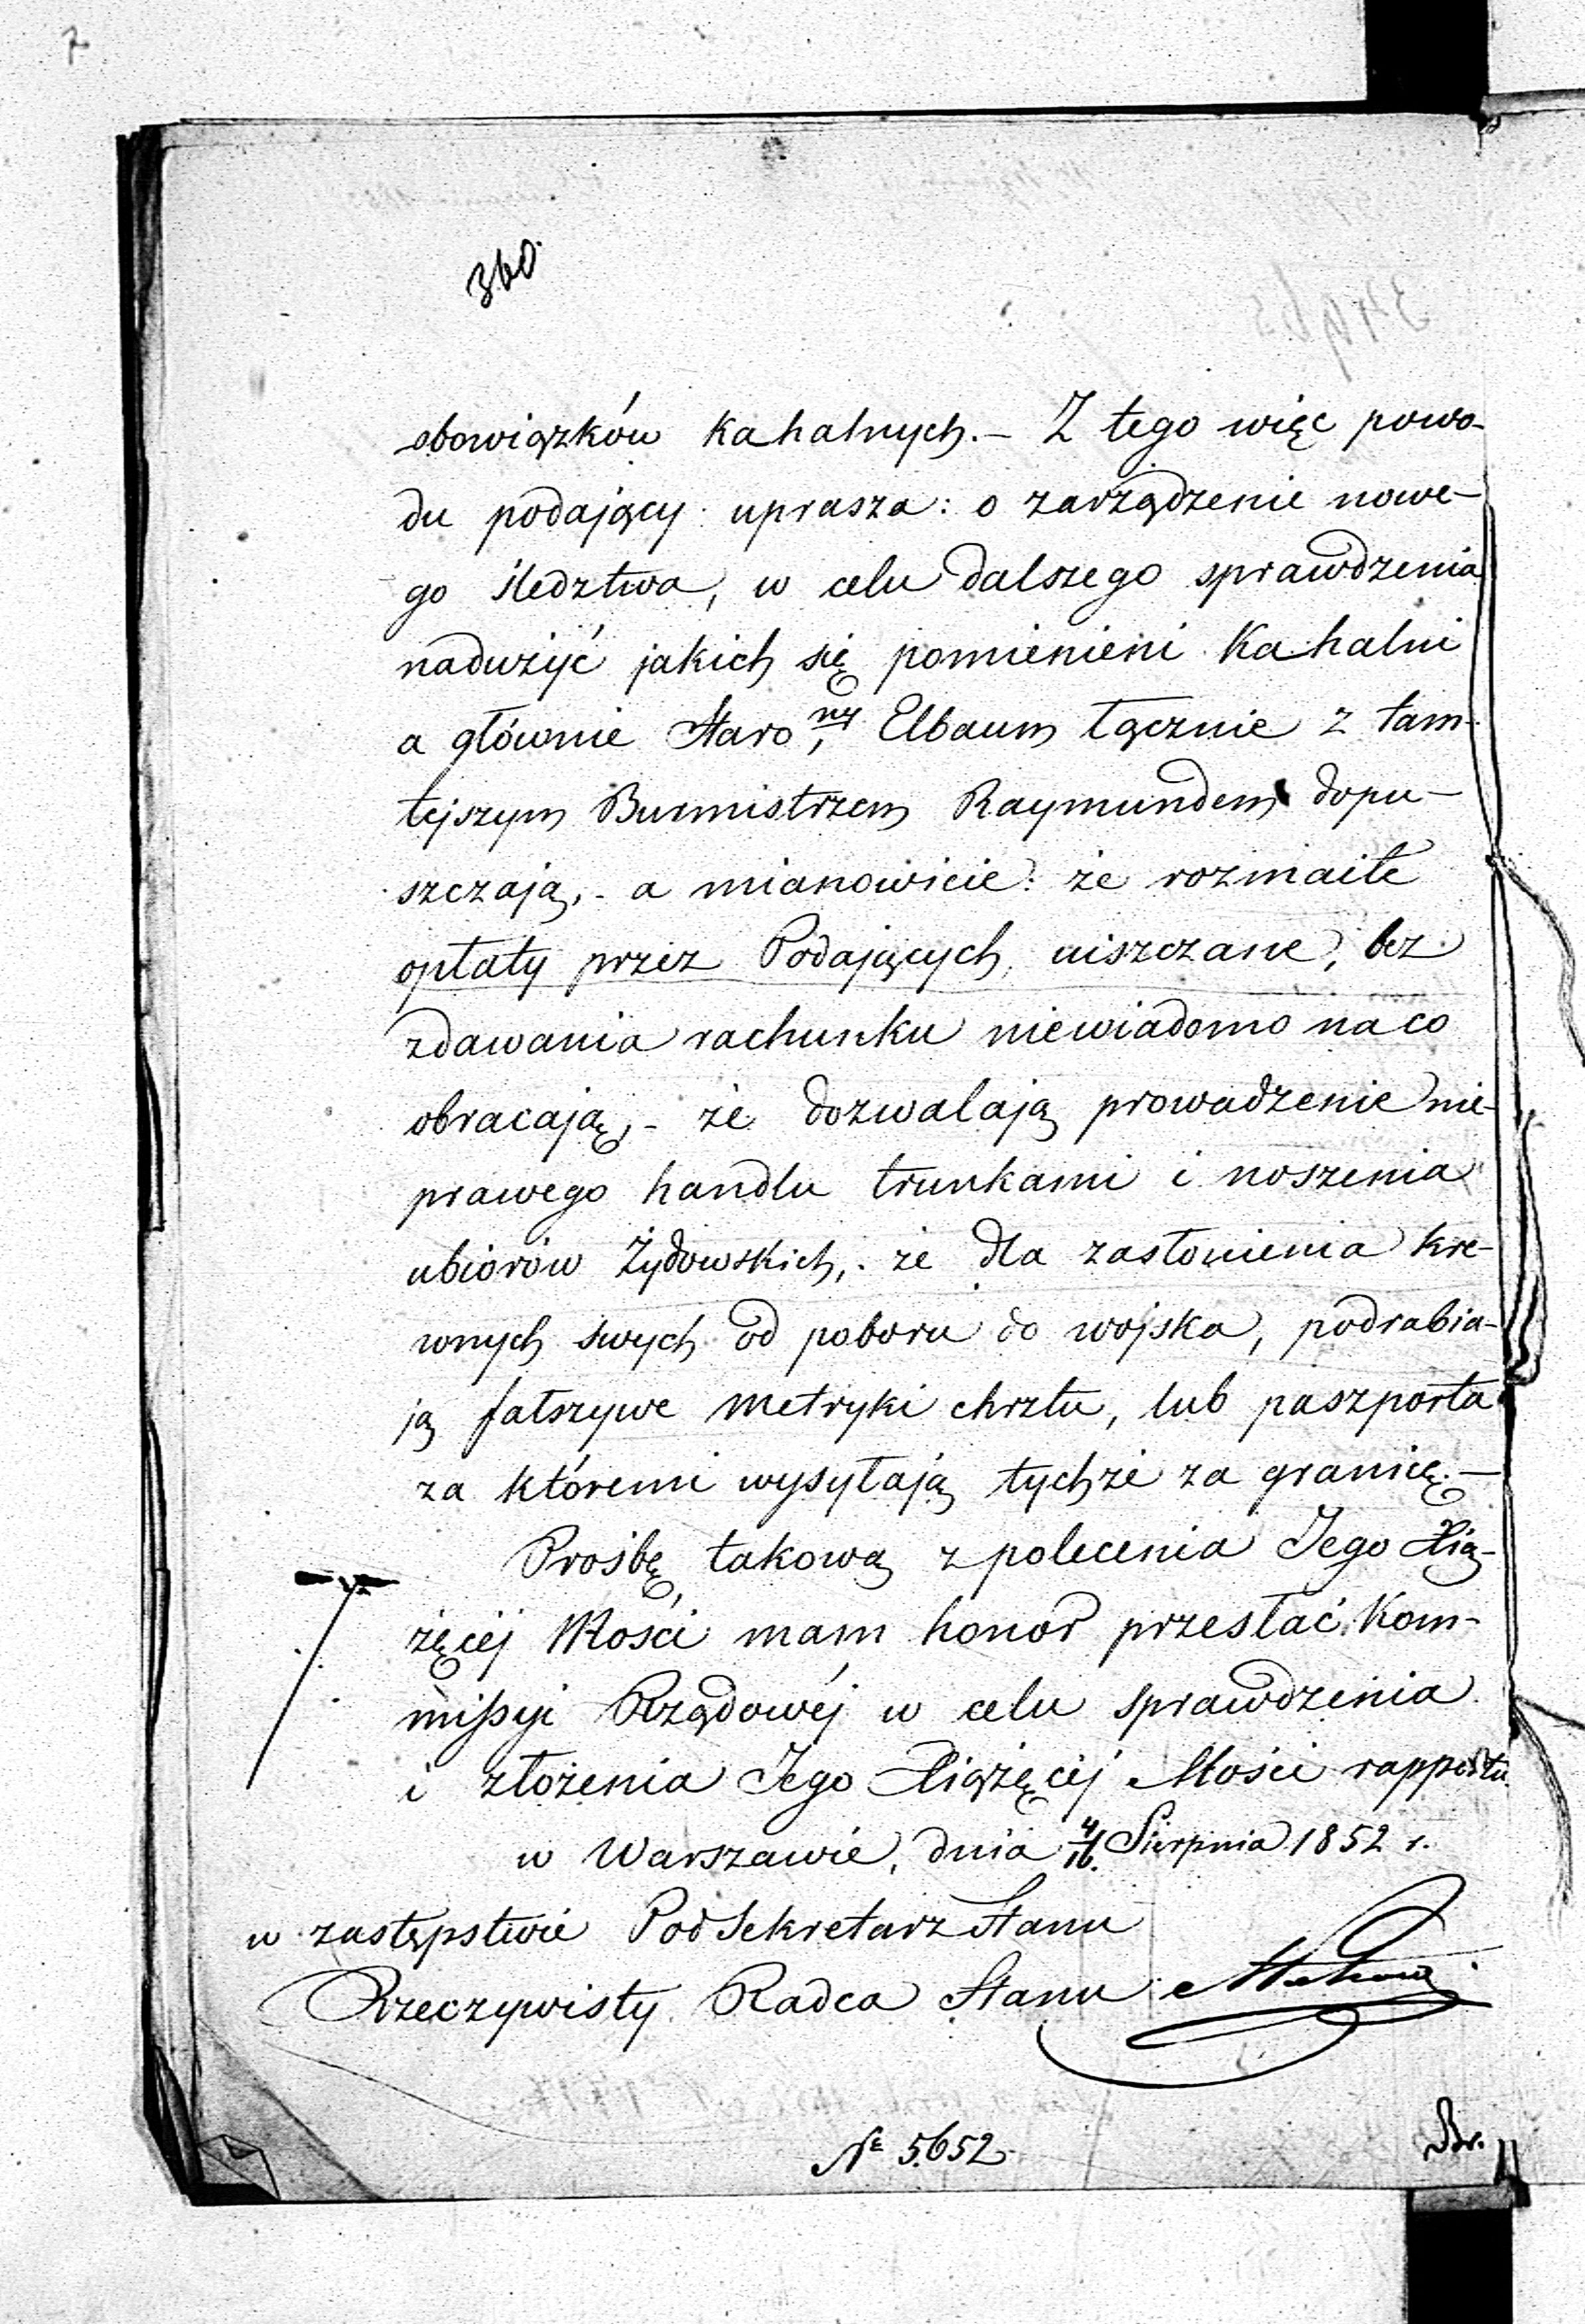 360.
obowiązków Kahalnych. – Z tego więc powo-
du podający uprasza: o zarządzenie nowe-
go śledztwa, w celu dalszego sprawdzenia
nadużyć jakich się pomienieni Kahalni
a głównie Staro ny, Elbaum łącznie z tam-
tejszym Burmistrzem Raymundem dopu-
szczają, - a mianowicie: że rozmaite
opłaty przez Podających, uiszczane, bez
zdawania rachunku niewiadomo na co
obracają, - że dozwalają prowadzenie nie-
prawego handlu trunkami i noszenia
ubiorów Żydowskich, - że dla zasłonienia kre-
wnych swych od poboru do wojska, podrabia-
ją fałszywe metryki chrztu, lub paszporta
za któremi wysyłają tychże za granicę. –
Prośbę takową z polecenia Jego Xią-
żęcej Mości mam honor przesłać Kom-
missyi Rządowéj w celu sprawdzenia
i złożenia Jego Xiążęcéj Mości rapportu
w Warszawie, dnia 4/16. Sierpnia 1852 r.
w zastępstwie PodSekretarz Stanu
Rzeczywisty Radca Stanu
№ 5652
Br.